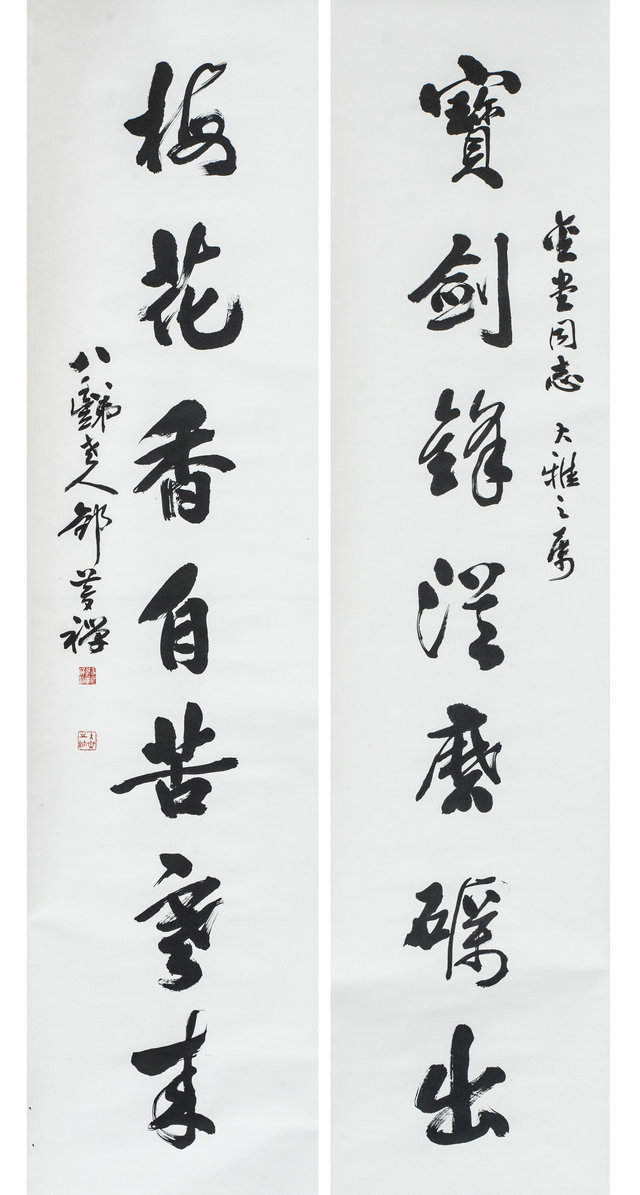 寶劍鋒從磨礪出
堂同志 大雅之屬
梅花香自苦寒來
老人鄒夢禪